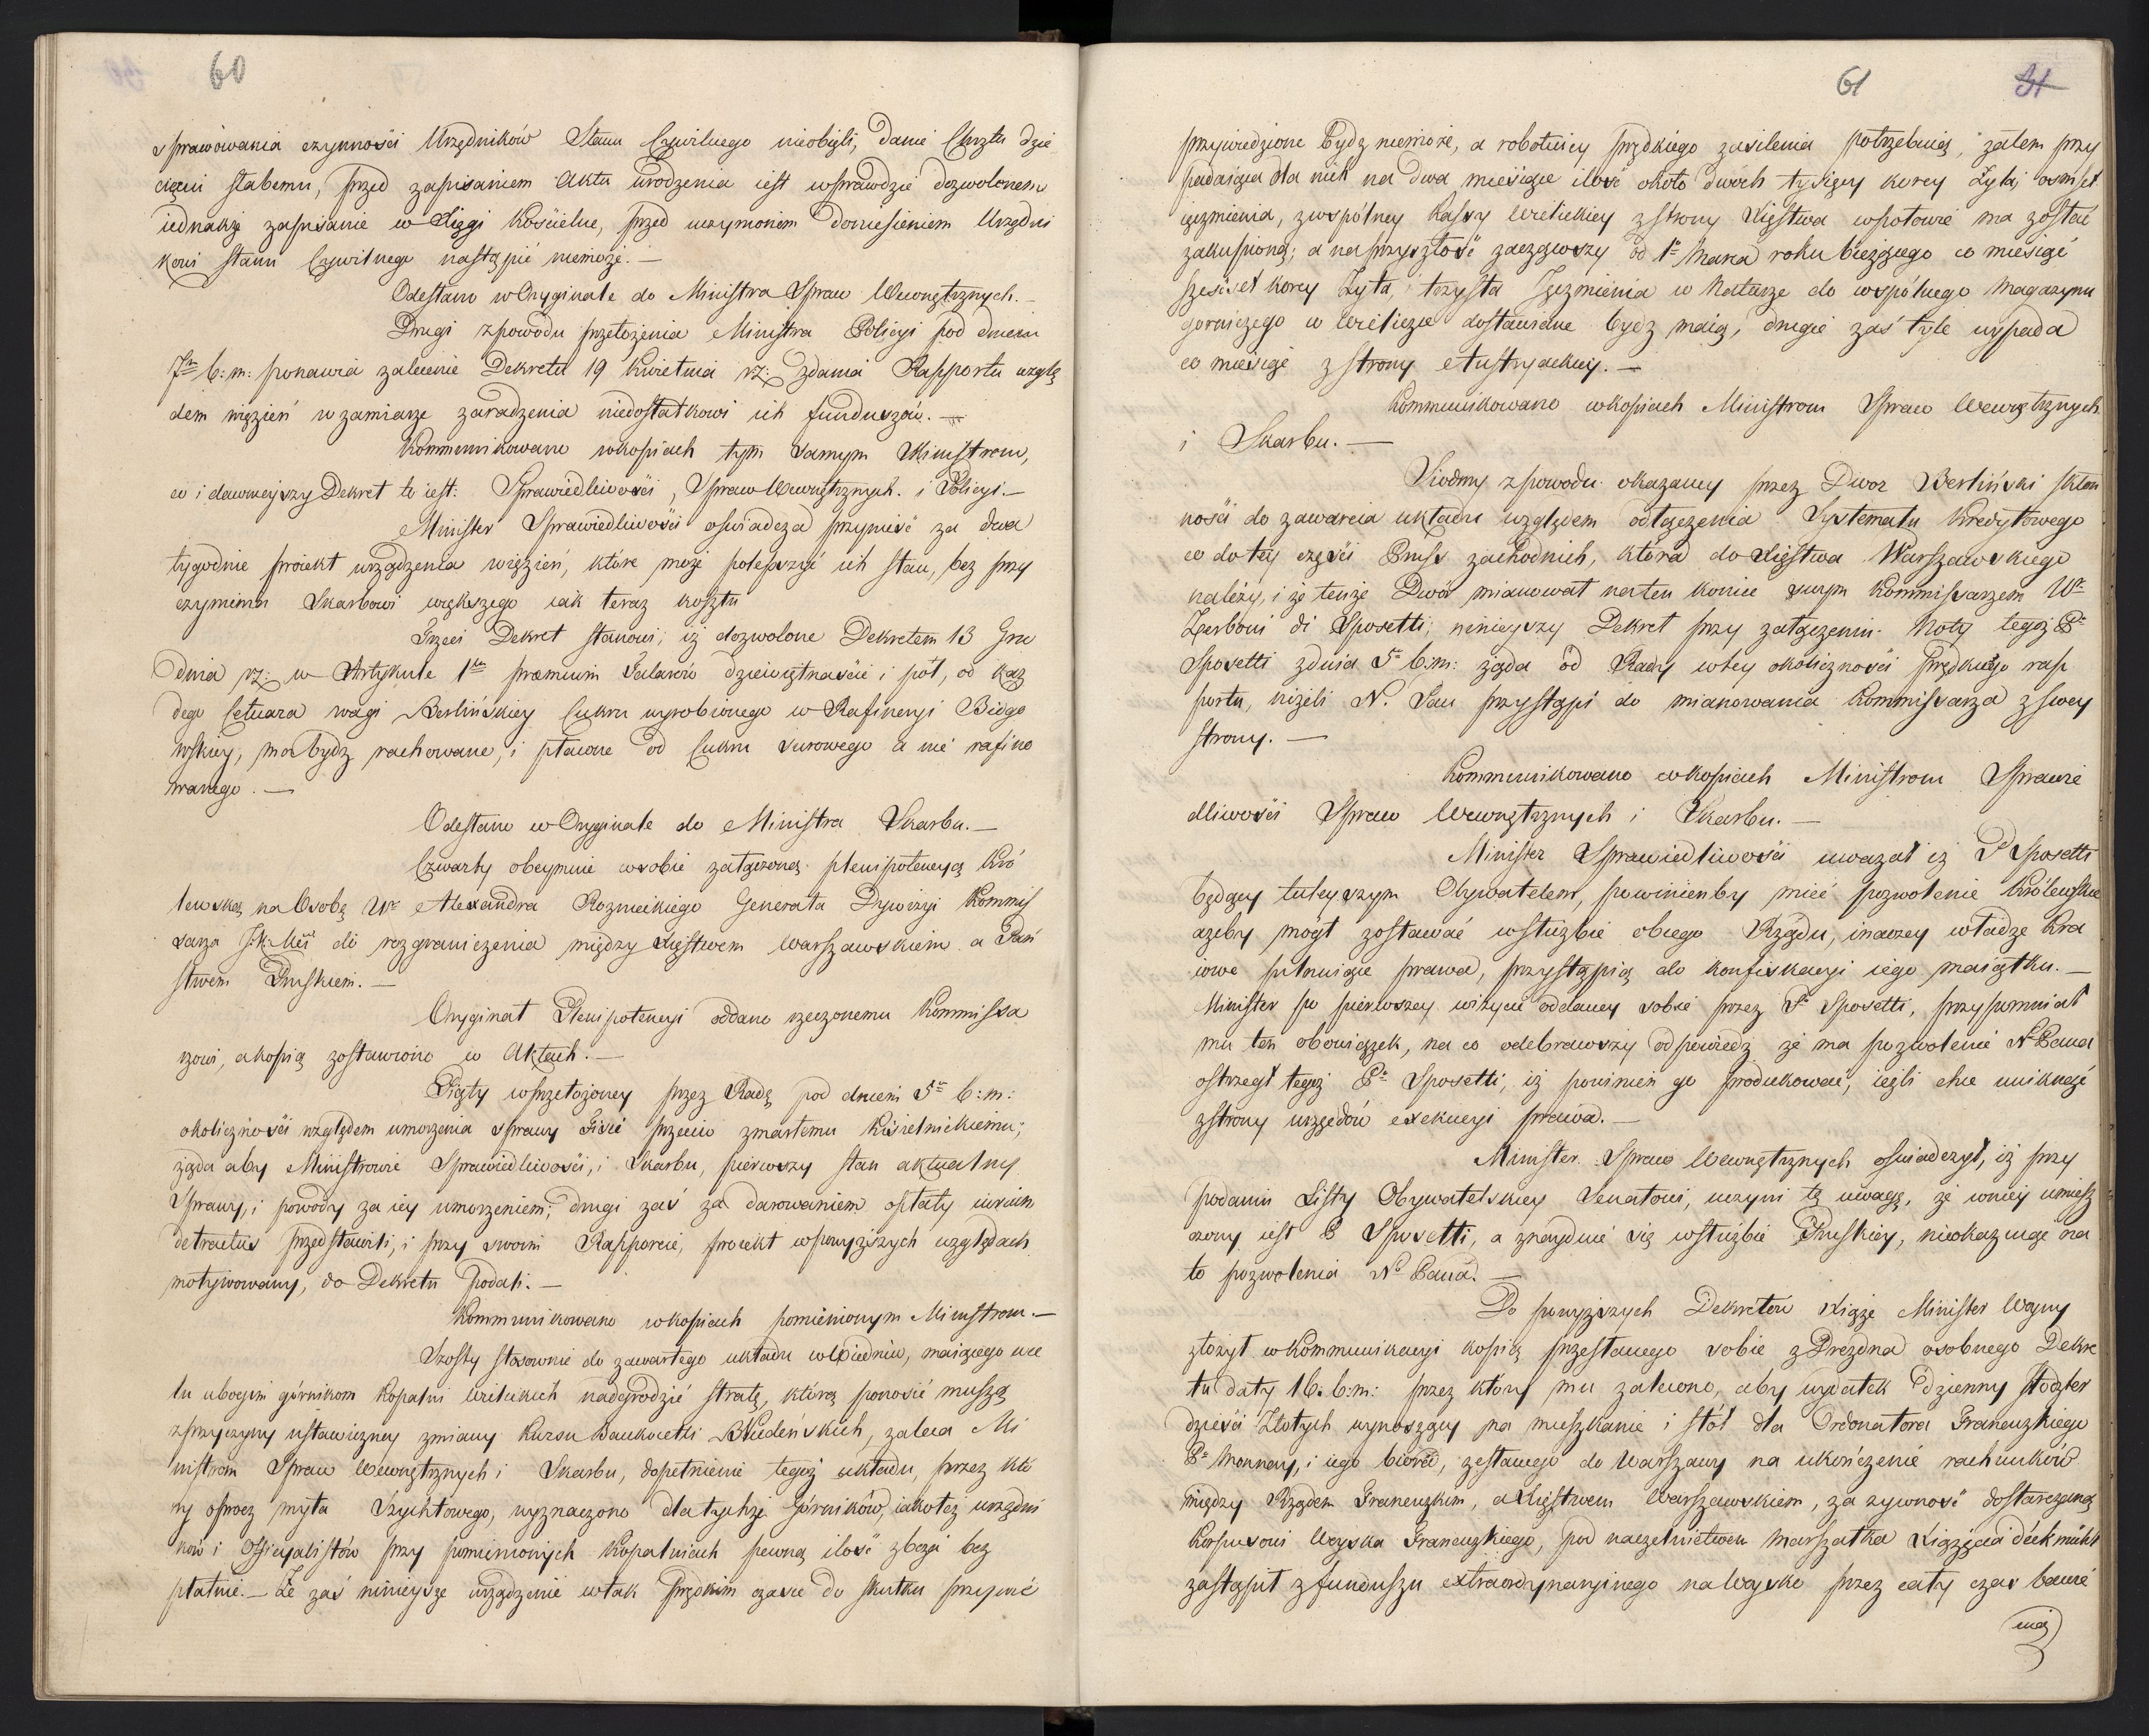 60
sprawowania czynności Urzędników Stanu Cywilnego nieobięli, danie Chrztu dzie
cięciu słabemu, przed zapisaniem Aktu urodzenia iest wprawdzie dozwolonem
iednakże zapisanie w Xięgi Kościelne, przed uczynionem doniesieniem Urzędni
kowi stanu Cywilnego nastąpić niemoże. —
Odesłano w Oryginale do Ministra Spraw Wewnętrznych. —
Drugi z powodu przełożenia Ministra Policyi pod dniem
7º b: m: ponawia zalecenie Dekretu 19 Kwietnia rz: zdania Rapportu wzglę
dem więzień w zamiarze zaradzenia niedostatkowi ich funduszów. —
Kommunikowano w kopiach tym samym Ministrom,
co i dawnieyszy Dekret to iest: Sprawiedliwości, Spraw Wewnętrznych. i Policyi. —
Minister Sprawiedliwości oświadcza przynieść za dwa
tygodnie proiekt urządzenia więzień, które może polepszyć ich stan, bez przy
czynienia Skarbowi większego iak teraz kosztu
Trzeci Dekret stanowi, iż dozwolone Dekretem 13 Gru
dnia rz: w Artykule 1m præmium Talarów dziewiętnaście i pół, od każ
dego Cetnara wagi Berlińskiey Cukru wyrobionego w Rafineryi Bydgo
wskiey, ma bydź rachowane, i płacone od Cukru surowego a nie rafino
wanego. —
Odesłano w Oryginale do Ministra Skarbu. —
Czwarty obeymuie w sobie załączoną plenipotencyą Kró
lewską na Osobę Wº Alexandra Rożnieckiego Generała Dywizyi Kommis
sarza J: K: Mci do rozgraniczenia między Xięstwem Warszawskiem a Pań
stwem Pruskiem. —
Oryginał Plenipotencyi oddano rzeczonemu Kommissa
rzowi, a kopią zostawiono w Aktach. —
Piąty w przełożoney przez Radę pod dniem 5º b: m:
okoliczności względem umorzenia sprawy Fisci przeciw zmarłemu Kisielnickiemu;
żąda aby Ministrowie Sprawiedliwości, i Skarbu, pierwszy stan aktualny
Sprawy, i powody za iey umorzeniem; drugi zaś za darowaniem opłaty iurium
detractus przedstawili, i przy swoim Rapporcie, proiekt w powyższych względach
motywowany, do Dekretu podali. —
Kommunikowano w kopiach pomienionym Ministrom. —
Szósty stosownie do zawartego układu w Wiedniu, maiącego na ce
lu ubogim górnikom Kopalni Wielickich nadgrodzić stratę, którą ponosić muszą
z przyczyny ustawiczney zmiany Kursu Bankocetli Wiedeńskich, zaleca Mi
nistrom Spraw Wewnętrznych i Skarbu, dopełnienie tegoż układu, przez któ
ry oprócz myta Szychtowego, wyznaczono dla tychże Górników, iakoteż urzędni
ków i Officyalistów przy pomienionych Kopalniach pewną ilość zboża bez
płatnie. — Że zaś ninieysze urządzenie w tak prędkim czasie do skutku przywie
61 31
przywiedzione bydź niemoże, a robotnicy prędkiego zasilenia potrzebuią, zatem przy
padaiąca dla nich na dwa miesiące ilość około dwóch tysięcy korcy Żyta, osmset
ięczmienia, z wspólney Kassy Wielickiey z strony Xięstwa w połowie ma zostać
zakupioną; a na przyszłość zacząwszy od 1º Marca roku bieżącego co miesiąc
sześćset korcy Żyta, i trzysta Jęczmienia w Naturze do wspólnego Magazynu
górniczego w Wieliczce dostawione bydź maią, drugie zaś tyle wypada
co miesiąc z strony Austryackiey. —
Kommunikowano w kopiach Ministrom Spraw Wewnętrznych
i Skarbu. —
Siódmy z powodu okazaney przez Dwór Berliński skłon
ności do zawarcia układu względem odłączenia Systematu Kredytowego
co do tey części Pruss zachodnich, która do Xięstwa Warszawskiego
należy, i że tenże Dwór mianował na ten koniec swym Kommissarzem Wº
Zerboni di Sposetti; ninieyszy Dekret przy załączeniu Noty tegoż Pº
Sposetti z dnia 5º b: m: żąda od Rady w tey okoliczności prędkiego rap
portu, niżeli N. Pan przystąpi do mianowania Kommissarza z swey
strony. —
Kommunikowano w kopiach Ministrom Sprawie
dliwości Spraw Wewnętrznych i Skarbu. —
Minister Sprawiedliwości uważał iż P Sposetti
będący tuteyszym Obywatelem, powinienby mieć pozwolenie Królewskie
ażeby mógł zostawać w służbie obcego Rządu, inaczey władze Kra
iowe pilnuiące prawa, przystąpią do konfiskacyi iego maiątku. —
Minister po pierwszey wizycie oddaney sobie przez Pº Sposetti, przypomniał
mu ten obowiązek, na co odebrawszy odpowiedź że ma pozwolenie Nº Pana
ostrzegł tegoż Pº Sposetti, iż powinien go produkować, ieżli chce uniknąć
z strony urzędów exekucyi prawa. —
Minister Spraw Wewnętrznych oświadczył, iż przy
podaniu Listy Obywatelskiey Senatowi, uczyni tę uwagę, że w niey umiesz
czony iest P Sposetti, a znayduie się w służbie Pruskiey, nieokazuiąc na
to pozwolenia Nº Pana. —
Do powyższych Dekretów Xiąże Minister Woyny
złożył w Kommunikacyi kopią przesłanego sobie z Drezdna osobnego Dekre
tu daty 16. b: m: przez który mu zalecono, aby wydatek dzienny czter
dzieści Złotych wynoszący na mieszkanie i stół dla Ordonatora Francuzkiego
Pº Monnay, i iego biora, zesłanego do Warszawy na ukończenie rachunków
między Rządem Francuzkim, a Xięstwem Warszawskiem, za żywność dostarczaną
Korpusowi Woyska Francuzkiego, pod naczelnictwem Marszałka Xiążęcia d'Eckmühl
zastąpił z funduszu extraordynaryinego na Woysko przez cały czas bawie
nia